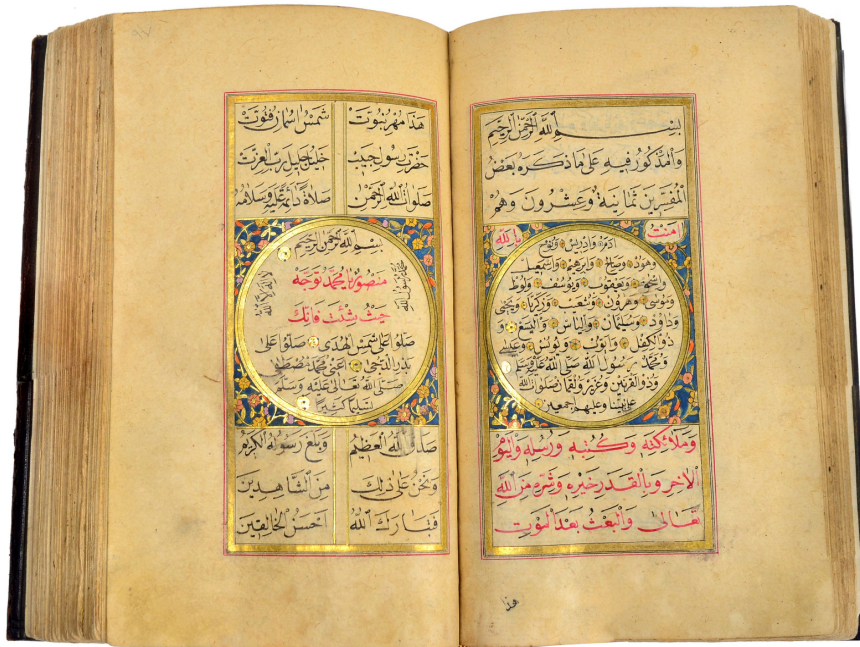 بسم الله الرحمن الرحيم
والمذكور فيه على ما ذكره بعض
المفسرين ثمانية وعشرون وهم
امنت بالله
ادم وادريس ونوح
وهود وصالح وابرهيم واسمعيل
واسحق ويعقوب ويوسف ولوط
وموسى وهرون وشعيب وزكريا ويحيى
وداود وسليمان والياس واليسع و
ذو الكفل وايوب ويونس وعيسى
ومحمد رسول الله صلى الله عليه وسلم
وذو القرنين وعزير ولقمان صلوات الله
على نبينا وعليهم اجمعين
وملائكته وكتبه ورسله واليوم
الاخر وبالقدر خيره وشره من الله
تعالى والبعث بعد الموت
هذا
٩٧
هذا مهر نبوت شمس اسمان فتوت
حضرت رسول حبيب خليل جليل رب العزت
صلوات الله الرحمن صلاة دائمة عليه وسلامه
بسم الله الرحمن الرحيم
لا اله الا الله
محمد رسول الله
منصور يا محمد توجه
حيث شئت فانك
صلوا على شمس الهدى صلوا على
بدر الدجى اعنى محمد مصطفى
صلى الله تعالى عليه وسلم
تسليما كثيرا
صدق الله العظيم وبلغ رسوله الكريم
ونحن على ذلك من الشاهدين
فتبارك الله احسن الخالقين